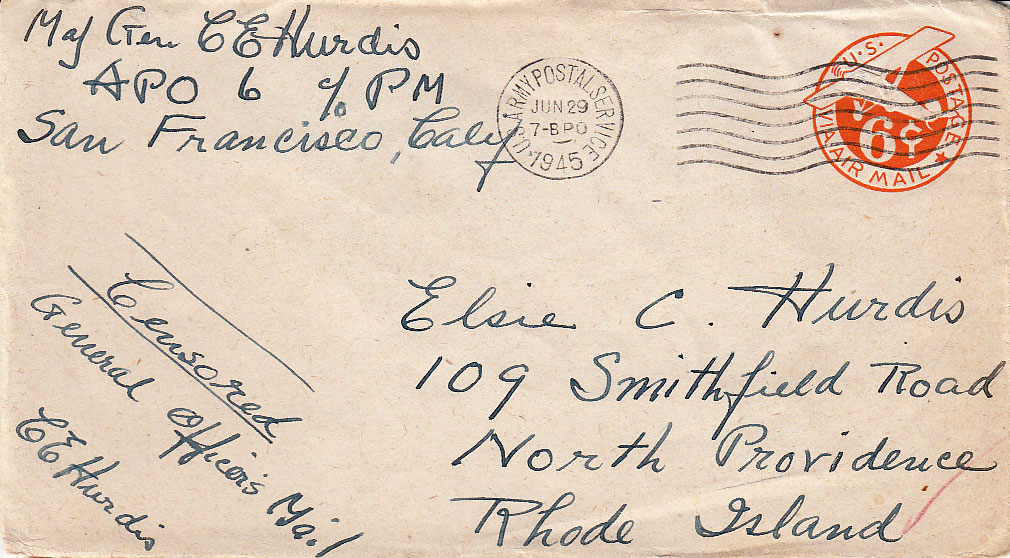 Maj Gen C E Hurdis
APO 6 c/o PM
San Francisco, Calif
U.S. ARMY POSTAL SERVICE
JUN 29
7-B PO
1945
U.S. POSTAGE
6¢
VIA AIR MAIL
Elsie C. Hurdis
109 Smithfield Road
North Providence
Rhode Island
Censored
General Officers Mail
C E Hurdis